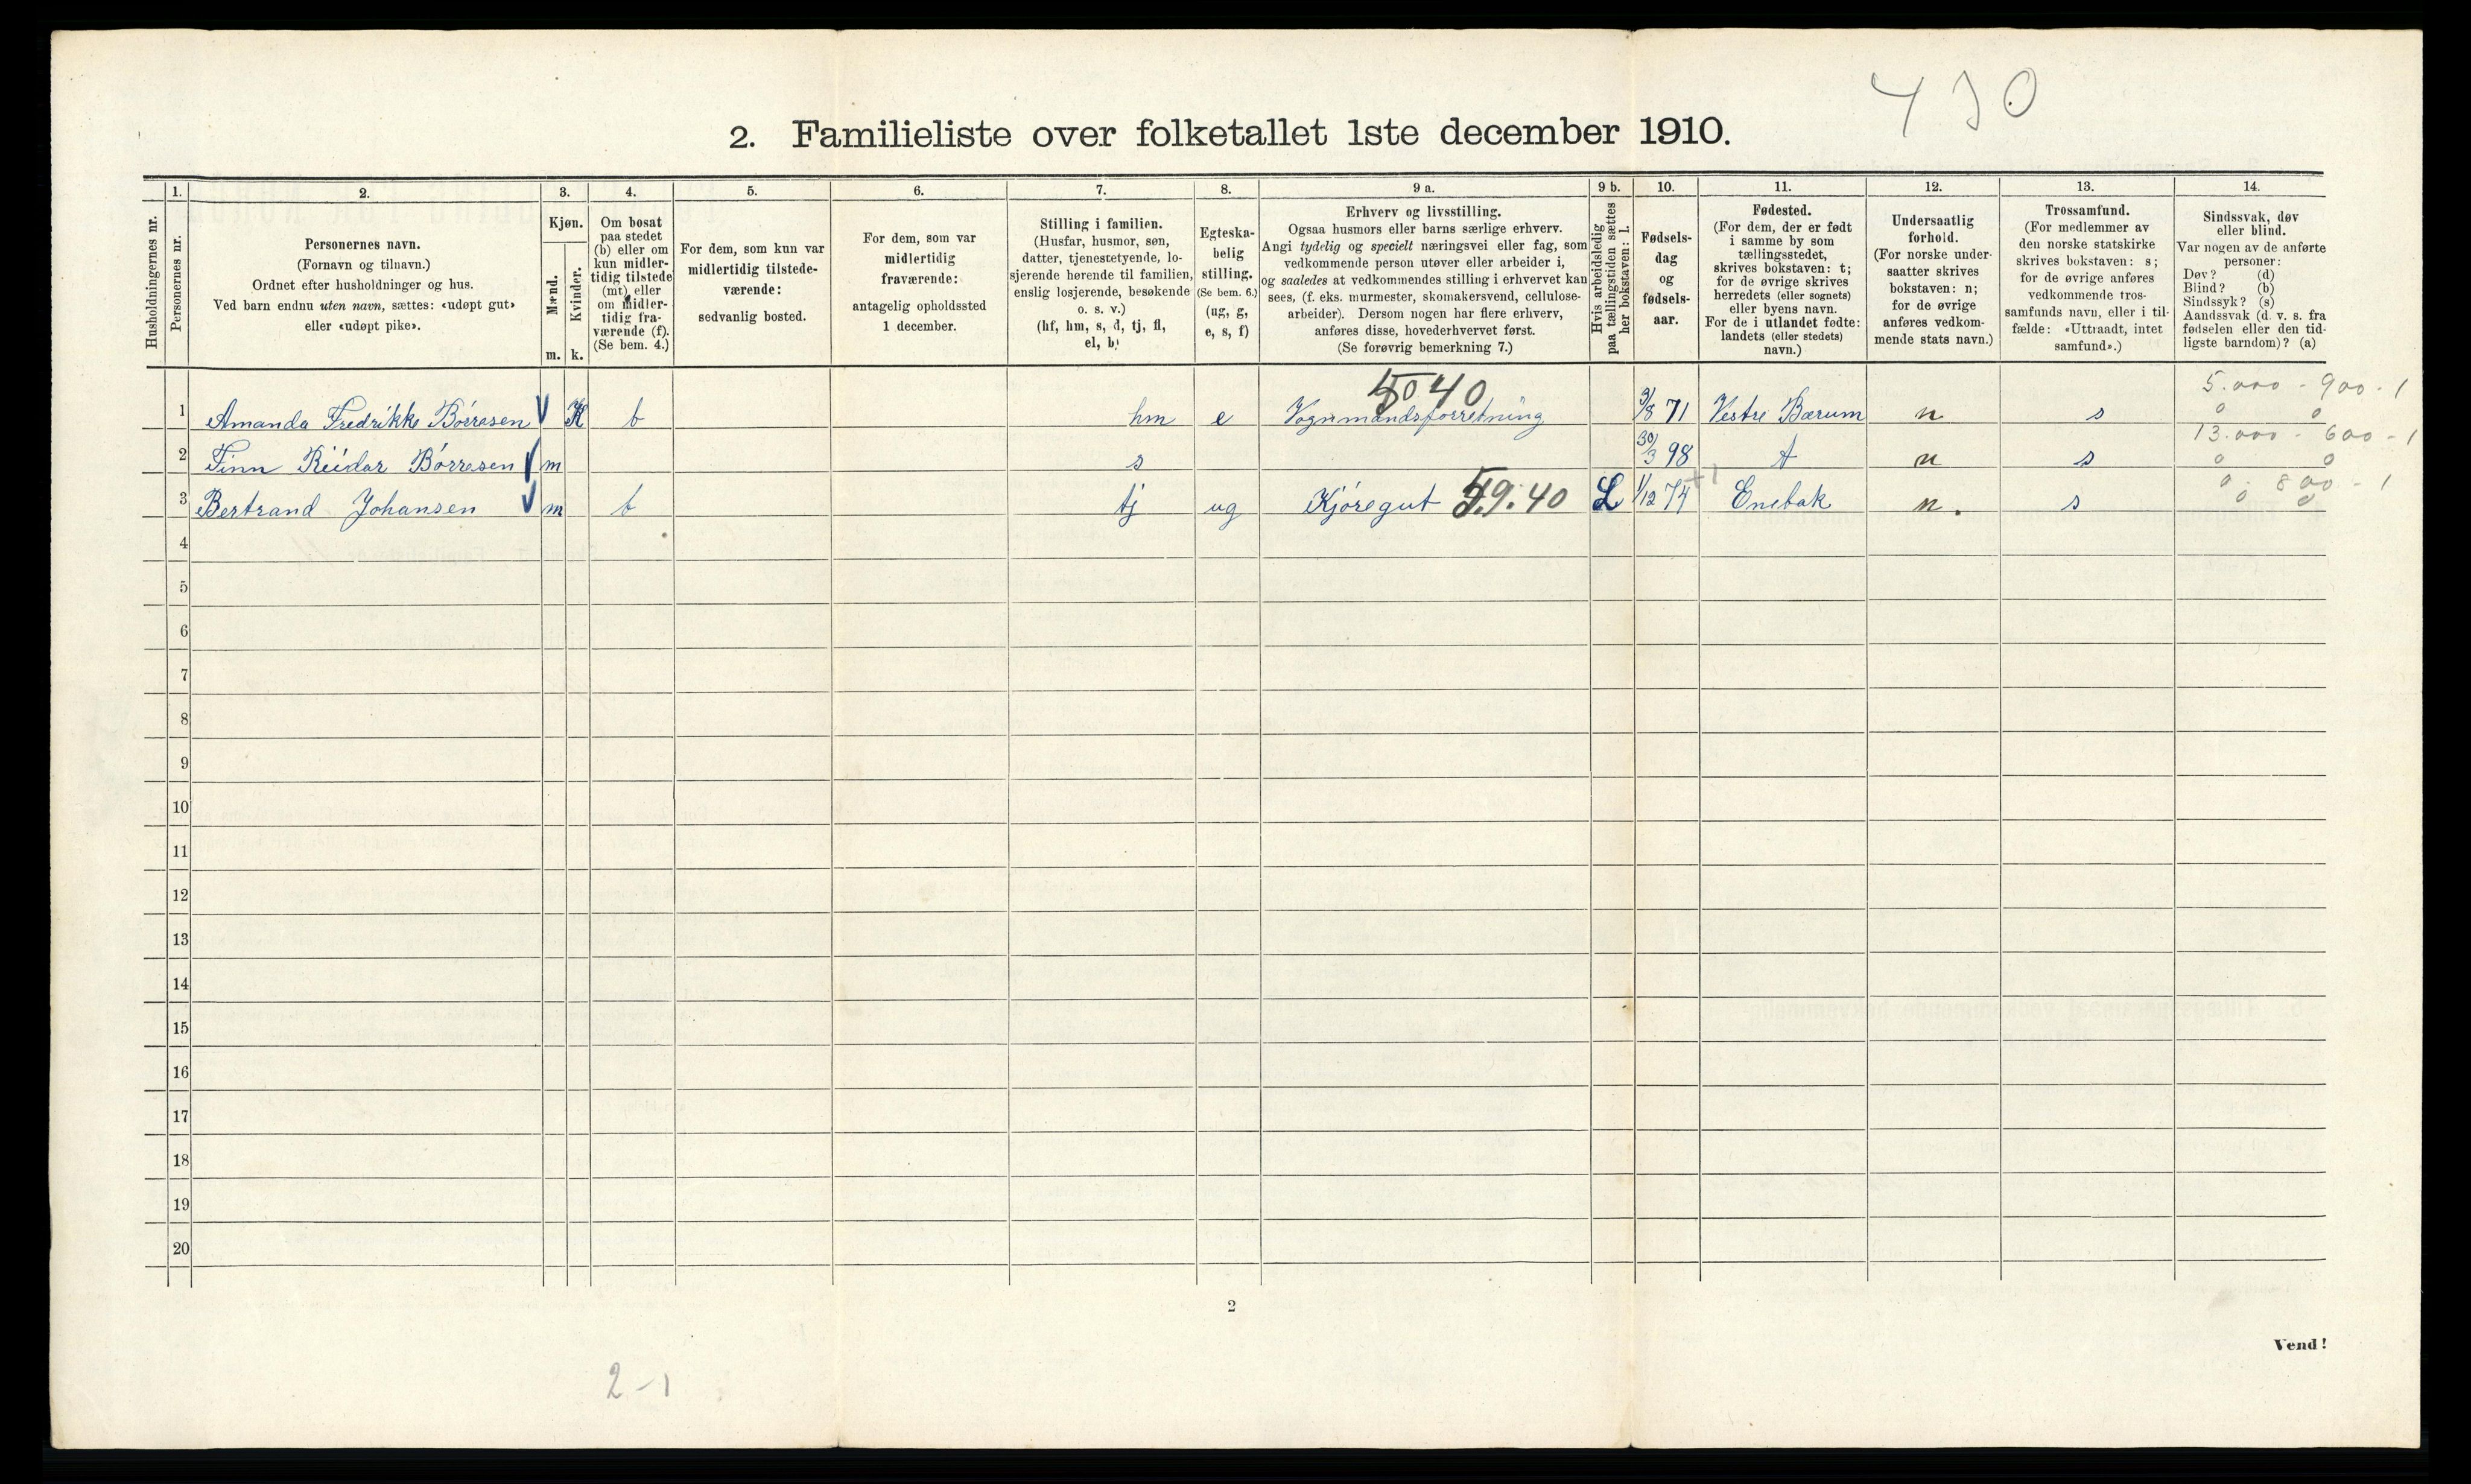 430
2. Familieliste over folketallet 1ste december 1910.
Husholdningernes nr.
1.
Personernes nr.
2.
Personernes navn.
(Fornavn og tilnavn.)
Ordnet efter husholdninger og hus.
Ved barn endnu uten navn, sættes: «udøpt gut»
eller «udøpt pike».
3.
Kjøn.
Mænd.
Kvinder.
m. k.
4.
Om bosat
paa stedet
(b) eller om
kun midler-
tidig tilstede
(mt) eller
om midler-
tidig fra-
værende (f).
(Se bem. 4.)
5.
For dem, som kun var
midlertidig tilstede-
værende:
sedvanlig bosted.
6.
For dem, som var
midlertidig
fraværende:
antagelig opholdssted
1 december.
7.
Stilling i familien.
(Husfar, husmor, søn,
datter, tjenestetyende, lo-
sjerende hørende til familien,
enslig losjerende, besøkende
o. s. v.)
(hf, hm, s, d, tj, fl,
el, b)
8.
Egteska-
belig
stilling.
(Se bem. 6.)
(ug, g,
e, s, f)
9 a.
Erhverv og livsstilling.
Ogsaa husmors eller barns særlige erhverv.
Angi tydelig og specielt næringsvei eller fag, som
vedkommende person utøver eller arbeider i,
og saaledes at vedkommendes stilling i erhvervet kan
sees, (f. eks. murmester, skomakersvend, cellulose-
arbeider). Dersom nogen har flere erhverv,
anføres disse, hovederhvervet først.
(Se forøvrig bemerkning 7.)
9 b.
Hvis arbeidsledig
paa tællingstiden sættes
her bokstaven: l.
10.
Fødsels-
dag
og
fødsels-
aar.
11.
Fødested.
(For dem, der er født
i samme by som
tællingsstedet,
skrives bokstaven: t;
for de øvrige skrives
herredets (eller sognets)
eller byens navn.
For de i utlandet fødte:
landets (eller stedets)
navn.)
12.
Undersaatlig
forhold.
(For norske under-
saatter skrives
bokstaven: n;
for de øvrige
anføres vedkom-
mende stats navn.)
13.
Trossamfund.
(For medlemmer av
den norske statskirke
skrives bokstaven: s;
for de øvrige anføres
vedkommende tros-
samfunds navn, eller i til-
fælde: «Uttraadt, intet
samfund».)
14.
Sindssvak, døv
eller blind.
Var nogen av de anførte
personer:
Døv? (d)
Blind? (b)
Sindssyk? (s)
Aandssvak (d. v. s. fra
fødselen eller den tid-
ligste barndom)? (a)
5040
5.000 - 900 - 1
1 Amanda Fredrikke Börresen K b hm e Vognmandsforretning 3/8 71 Vestre Bærum n s 0 0
13.000 - 600 - 1
2 Finn Reidar Börresen m s 30/3 98 t n s 0 0
0. 800 - 1
3 Bertrand Johansen m b tj ug Kjöregut 59.40 L 1/12 74 +1 Enebak n. s 0 0
4
5
6
7
8
9
10
11
12
13
14
15
16
17
18
19
20
2
Vend!
2-1